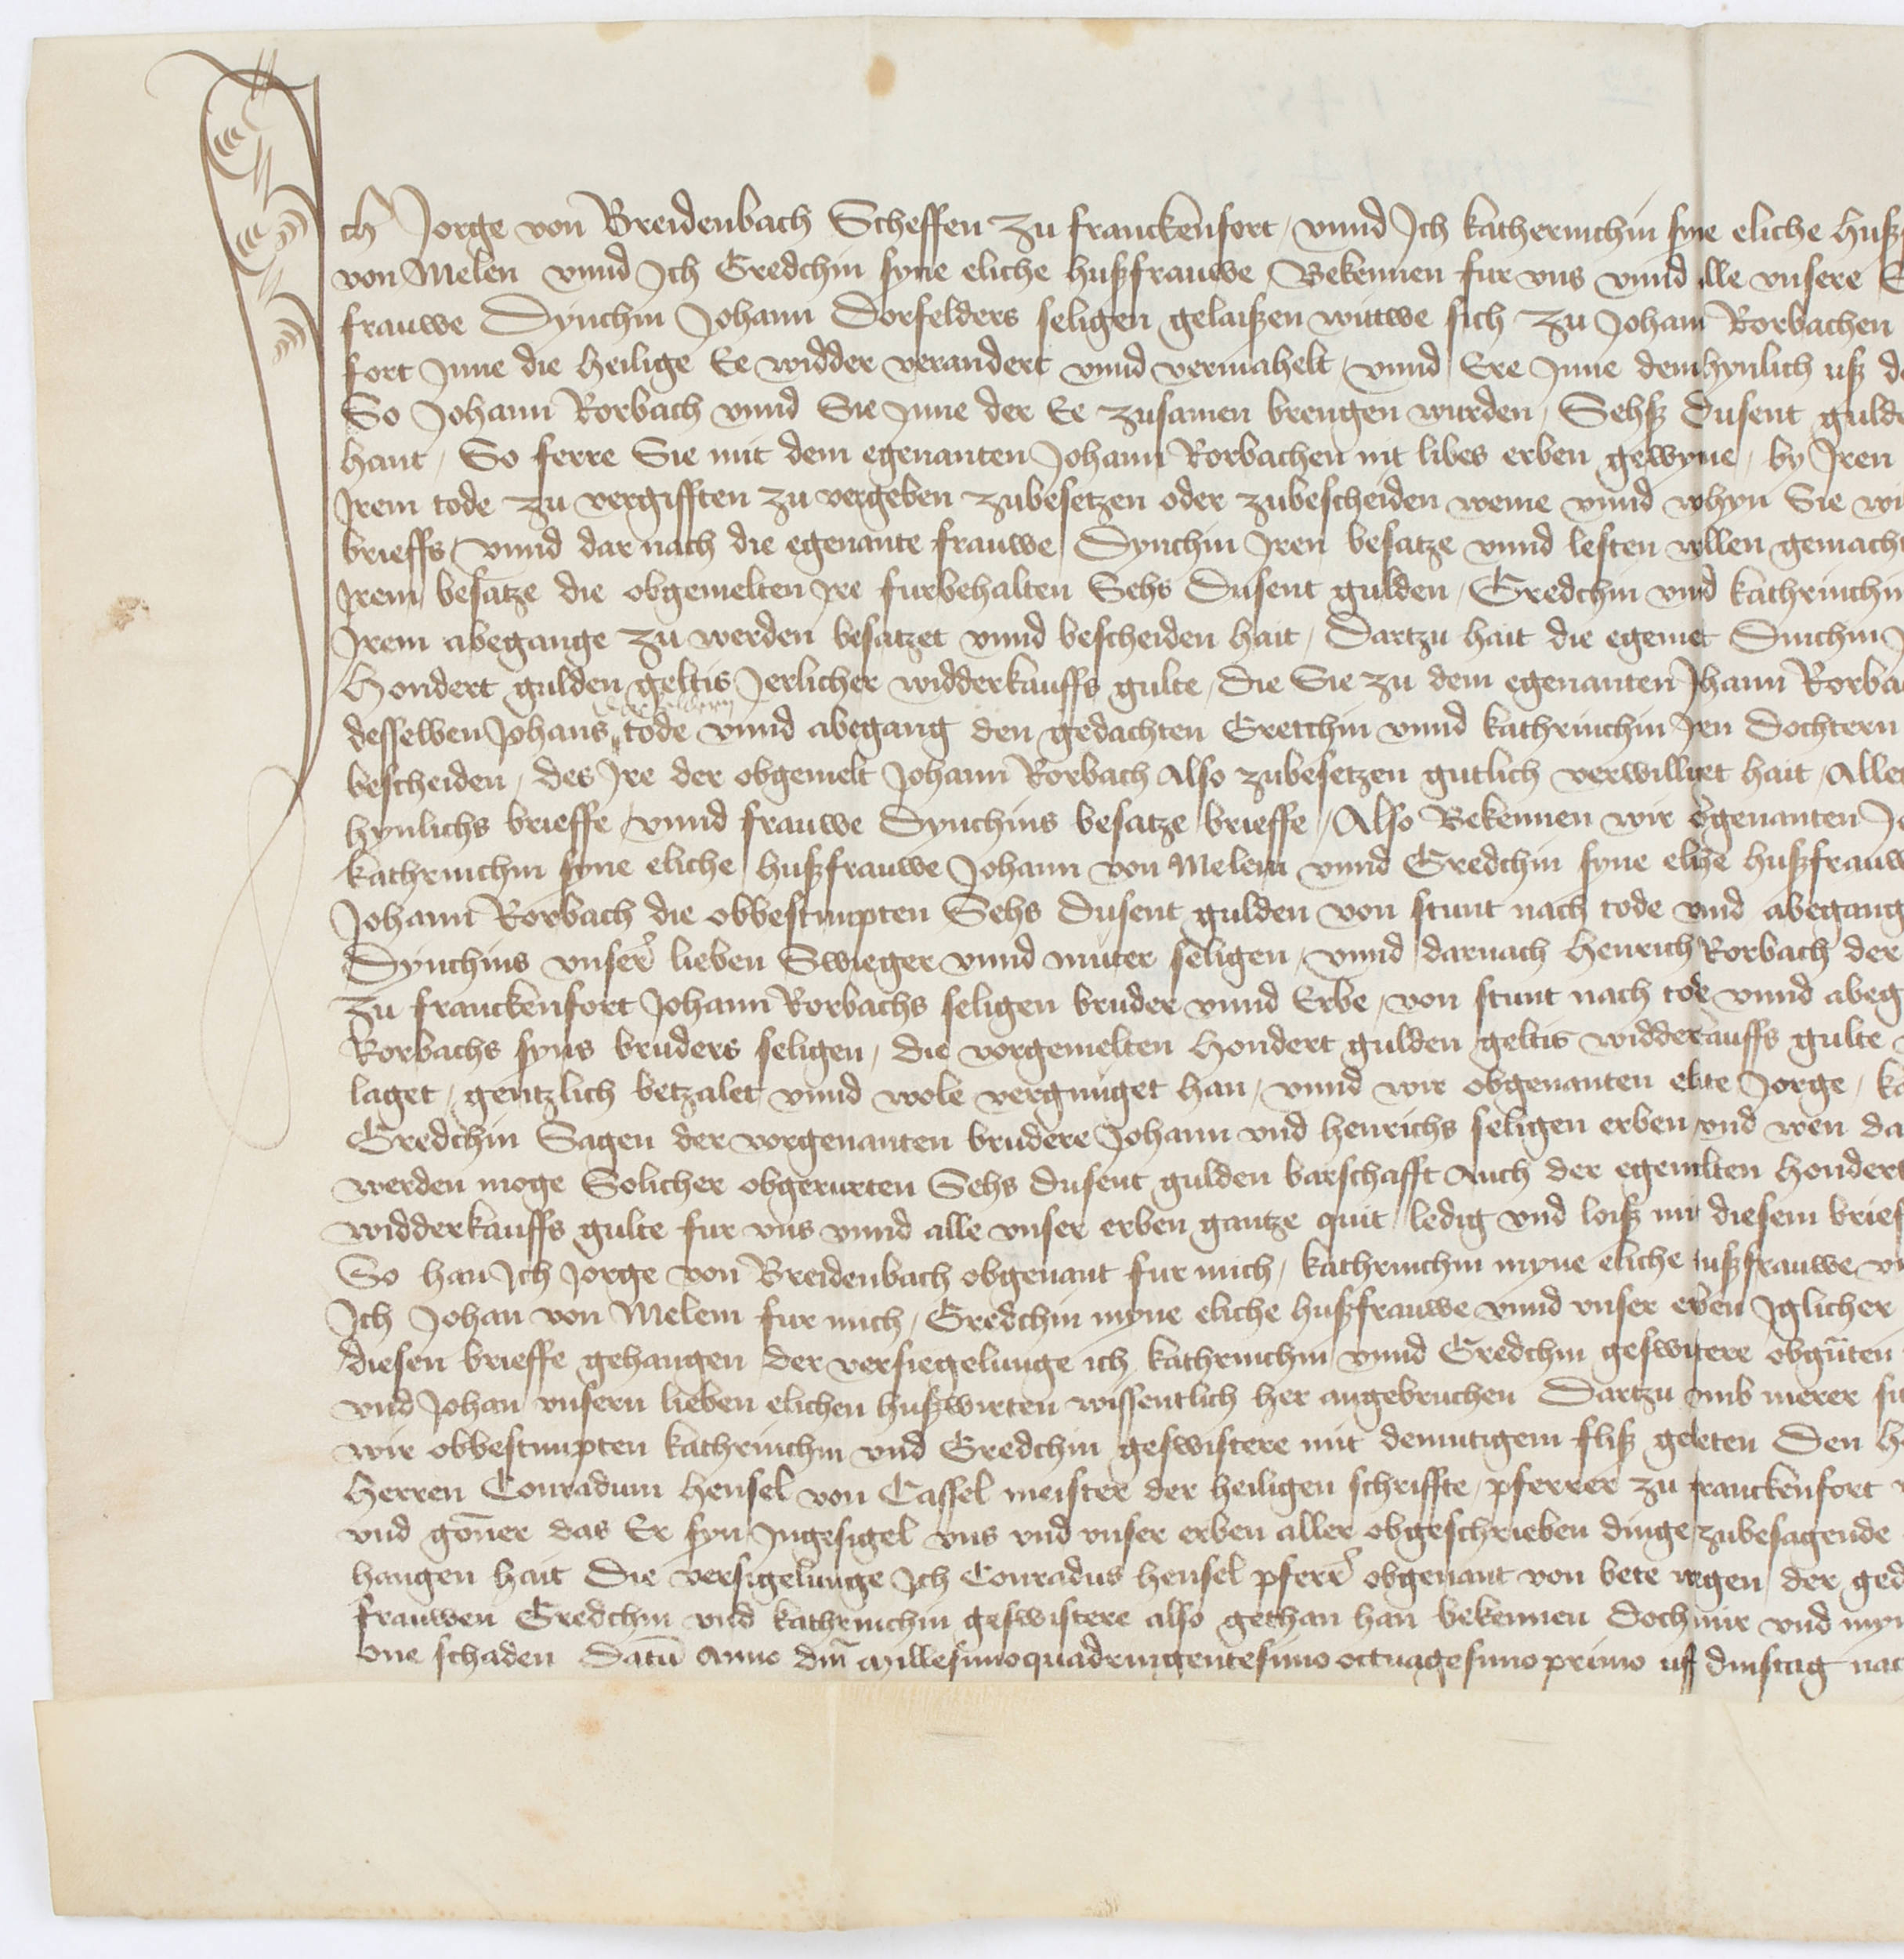 Ich Jorge von Breidenbach Scheffen zu franckenfort / vnnd Ich katherinchin syne eliche Hußf
von Melen vnnd Ich Gredchin syne eliche hußfrauwe / Bekennen fur vns vnnd alle vnsere E
frauwe Dynchin Johann Dorfelders seligen gelaißen wittwe sich zu Johann Rorbachen
fort Inne die Heilige Ee widder verandert vnnd vermahelt / vnnd Ere Inne dem hynlich uß de
So Johann Rorbach vnnd Sie Inne der Ee zusamen brengen wurden / Sehß Dusent gulde
hant / So ferre Sie mit dem egenanten Johann Rorbachen nit libes erben gewyne / by Iren
Irem tode zu vergifften zu vergeben zubesetzen oder zubescheiden weme vnnd whyn Sie wi
brieffs / vnnd dar nach die egenante frauwe Dynchin Iren besatze vnnd lesten willen gemacht
Irem besatze die obgemelten Ire furbehalten Sehs Dusent gulden / Gredchin vnd kathrinchin
Irem abegange zu werden besatzet vnnd bescheiden hait / Dartzu hait die egemet Dinchin J
Hondert gulden geltis Jerlicher widderkauffs gulte / die Sie zu dem egenanten Johann Rorba
desselben Johans tode vnnd abegang den gedachten Gretchin vnnd kathrinchin Iren Dochtern
bescheiden / des Ire der obgemelt Johann Rorbach Also zubesetzen gutlich verwilliget hait / Alles
hynlichs brieffe / vnnd frauwe Dynchins besatze brieffe / Also Bekennen wir obgenanten Jo
kathrinchin syne eliche hußfrauwe Johann von Melem vnnd Gredchin syne eliche hußfrauw
Johann Rorbach die obbestimpten Sehs Dusent gulden von stunt nach tode vnd abegang
Dynchins vnser lieben Swieger vnnd muter seligen / vnnd darnach Henrich Rorbach der
zu franckenfort Johann Rorbachs seligen bruder vnnd Erbe / von stunt nach tode vnnd abeg
Rorbachs syns bruders seligen / die vorgemelten Hondert gulden geltis widderkauffs gulte
laget / gentzlich betzalet vnnd wole vergnuget han / vnnd wir obgenanten elute Jorge / ka
Gredchin Sagen der vorgenanten brudere Johann vnd henrichs seligen erben vnd wen da
werden moge Solicher obgerurten Sehs dusent gulden barschafft Auch der egemelten Hondert
widderkauffs gulte fur vns vnnd alle vnser erben gantze quit ledig vnd loiß mit diesem brief
So han Ich Jorge von Breidenbach obgenant fur mich / kathrinchin myne eliche hußfrauwe vn
Ich Johan von Melem fur mich / Gredchin myne eliche hußfrauwe vnnd vnser erben Iglicher
diesen brieffe gehangen der versiegelunge ich kathrinchin vnnd Gredchin geswistere obgnten
vnd Johan vnsern lieben elichen hußwirten wissentlich her angebruchen Dartzu vmb merer sic
wir obbestimpten kathrinchin vnd Gredchin geswistere mit demutigem fliß gebeten Den H
Herren Conradum Hensel von Cassel meister der heiligen schriffte / pferrer zu franckenfort
vnd gonner das Er syn Ingesigel vns vnd vnser erben aller obgeschrieben dinge zubesagende
hangen hait Die versigelunge Ich Conradus Hensel pferrer obgenant von bete wegen der ged
frauwen Gredchin vnd kathrinchin geswistere also gethan han bekennen Doch mir vnd myn
one schaden Datu Anno dni Millesimoquadringentesimo octuagesimo primo uff dinstag nac